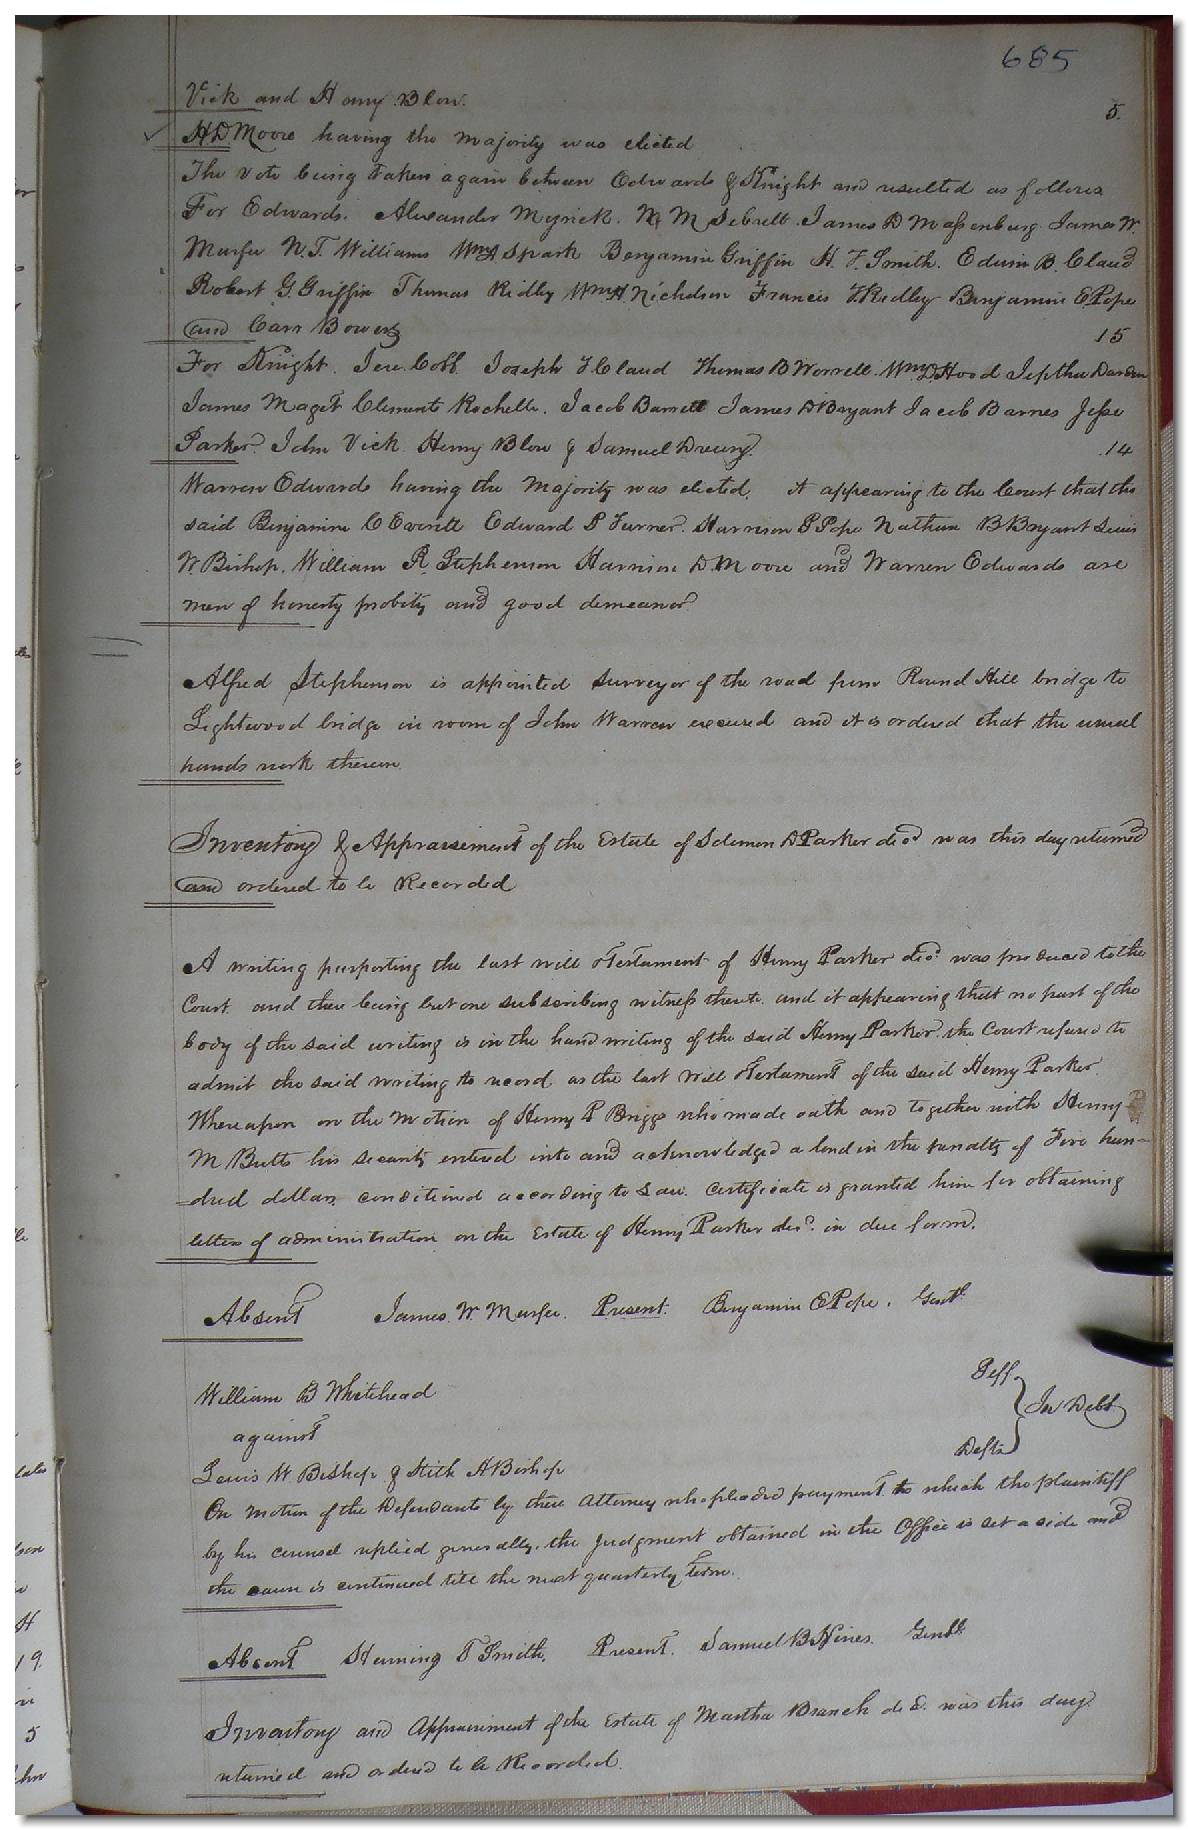 685
Vick and Henry Blow. 5.
H D Moore having the majority was elected
The vote being taken again between Edwards & Knight and resulted as follows
For Edwards. Alexander Myrick. M M Sebrell. James D Massenburg James W.
Murfee N. T. Williams Wm A Spark Benjamin Griffin H. T. Smith. Edwin B. Claud
Robert G. Griffin Thomas Ridley Wm H. Nicholson Francis T Ridley Benjamin E Pope
and Carr Bowers 15
For Knight. Jere. Cobb Joseph T Claud Thomas B Worrell. Wm D Hood Jeptha Darden
James Maget Clements Rochelle. Jacob Barrett James D Bryant Jacob Barnes Jesse
Parker. John Vick Henry Blow & Samuel Drewry. 14
Warren Edwards having the majority was elected. it appearing to the Court that the
said Benjamin C Everitt Edward P Turner. Harrison P Pope Nathan B Bryant Lewis
W. Bishop. William R. Stephenson Harrison D. Moore and Warren Edwards are
men of honesty probity and good demeanor
Alfred Stephenson is appointed surveyor of the road from Round Hill bridge to
Lightwood bridge in room of John Warren excused and it is ordered that the usual
hands work thereon.
Inventory & Appraisement of the Estate of Solomon D Parker decd was this day returned
and ordered to be Recorded
A writing purporting the last will & Testament of Henry Parker decd. was produced to the
Court. and there being but one subscribing witness thereto. and it appearing that no part of the
body of the said writing is in the hand writing of the said Henry Parker. the Court refused to
admit the said writing to record as the last Will & Testament of the said Henry Parker.
Whereupon on the motion of Henry P Briggs who made oath and together with Henry
M Butts his security entered into and acknowledged a bond in the penalty of Five hun-
=dred dollars conditioned according to Law. certificate is granted him for obtaining
letters of administration on the Estate of Henry Parker decd. in due form.
Absent James. W. Murfee. Present. Benjamin E Pope. Gentl.
William B Whitehead Peff.
against In Debt
Lewis W Bishop & Stith A Bishop Defts
On motion of the Defendants by their Attorney who pleaded payment to which the plaintiff
by his counsel replied generally. the judgment obtained in the Office is set aside and
the cause is continued till the next quarterly Term.
Absent Henning T Smith. Present. Samuel B Hines. Gentl.
Inventory and Appraisement of the Estate of Martha Branch decd. was this day
returned and ordered to be Recorded.